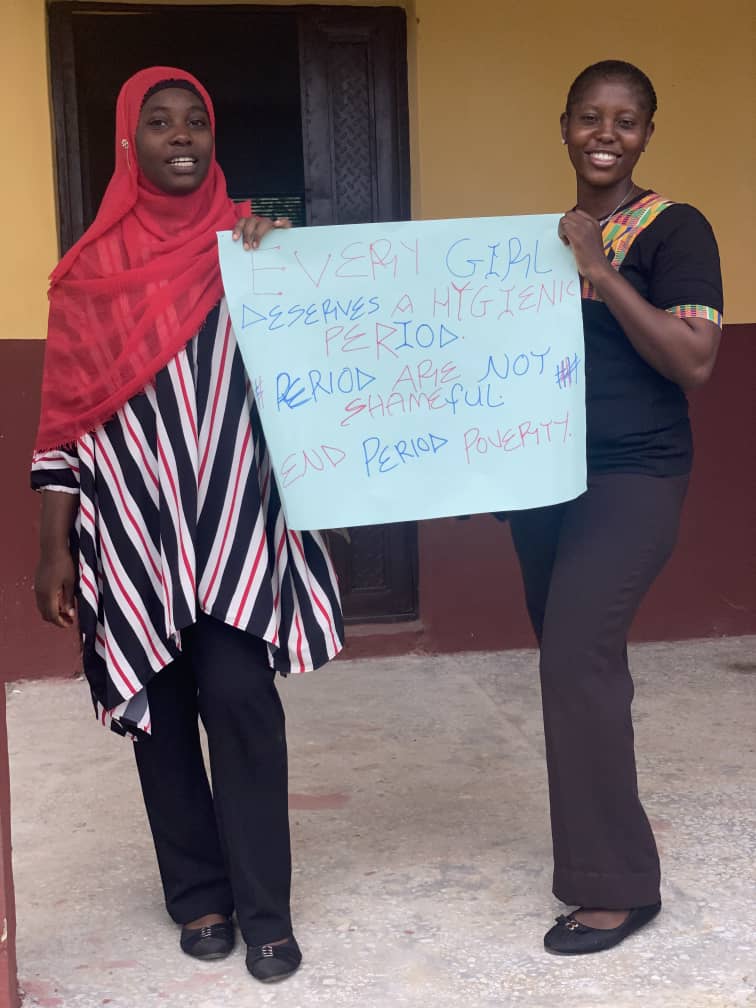 EVERY GIRL
DESERVES A HYGIENIC
PERIOD.
# PERIOD ARE NOT #
SHAMEFUL.
END PERIOD POVERTY.